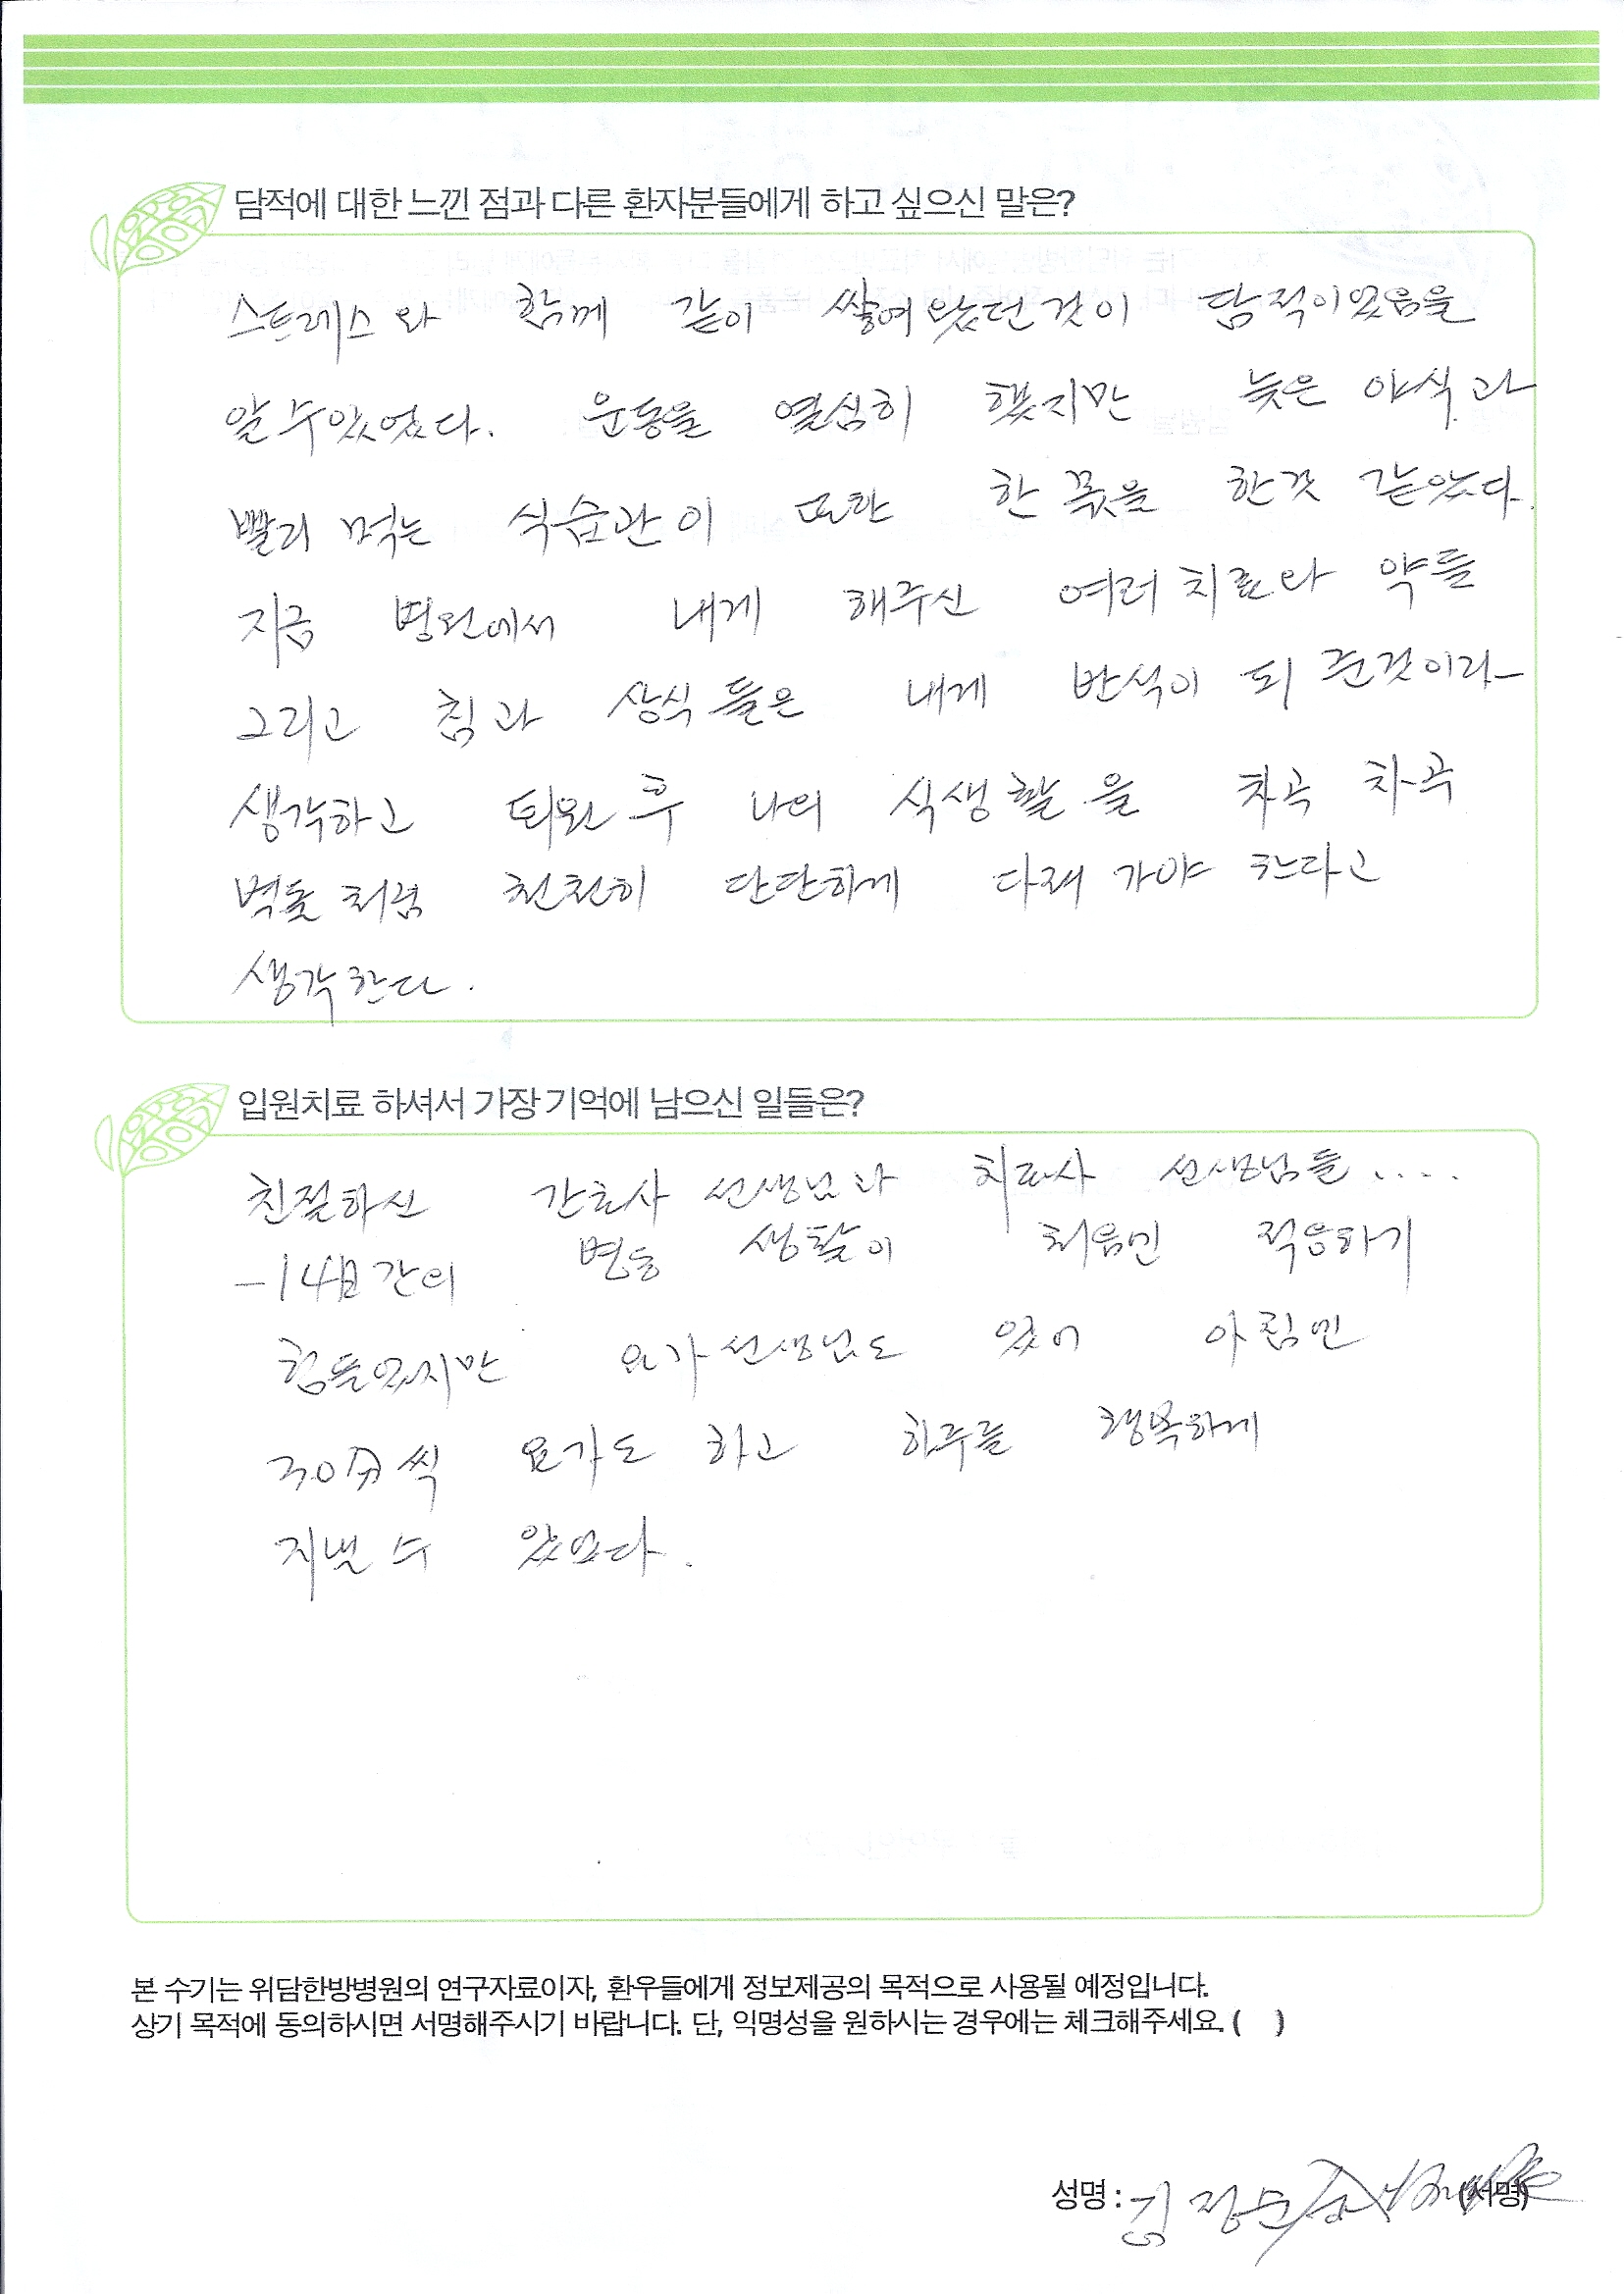 담적에 대한 느낀 점과 다른 환자분들에게 하고 싶으신 말은?
스트레스와 함께 같이 쌓여왔던것이 담적이였음을
알수있었다. 운동을 열심히 했지만 늦은 야식과
빨리 먹는 식습관이 또한 한 몫을 한것 같았다.
지금 병원에서 내게 해주신 여러치료와 약들
그리고 침과 상식들은 내게 반석이 되 준것이라
생각하고 퇴원 후 나의 식생활을 차곡 차곡
벽돌처럼 천천히 단단하게 다져 가야 한다고
생각한다.
입원치료 하셔서 가장 기억에 남으신 일들은?
친절하신 간호사 선생님과 치료사 선생님들....
-14日간의 병동 생활이 처음인 적응하기
힘들었지만 요가선생님도 있어 아침인
30分씩 요가도 하고 하루를 행복하게
지낼 수 있었다.
본 수기는 위담한방병원의 연구자료이자, 환우들에게 정보제공의 목적으로 사용될 예정입니다.
상기 목적에 동의하시면 서명해주시기 바랍니다. 단, 익명성을 원하시는 경우에는 체크해주세요. ( )
성명 : 김정순 (서명)